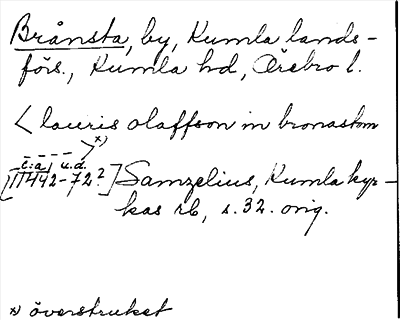 Brånsta, by, Kumla lands-
förs., Kumla hd, Örebro l.
< lauris olaffson in bronastom
x)
c:a) u.d.
[1442-72?] Samzelius, Kumla kyr-
kas rb, s. 32. orig.
x) överstruket